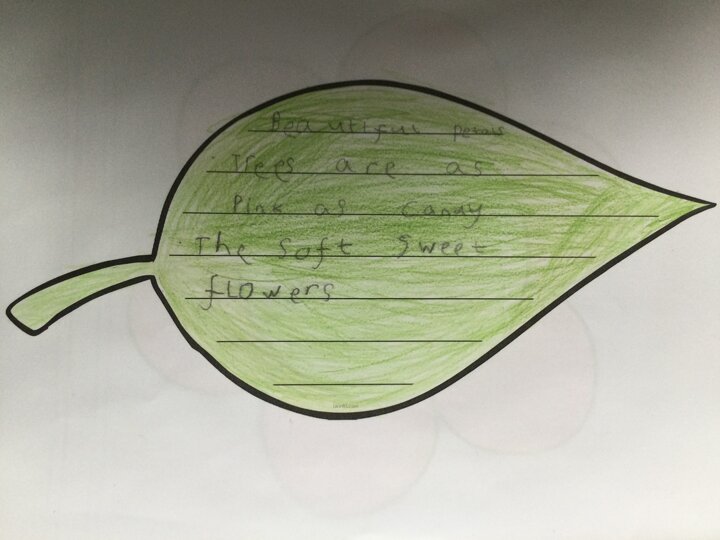 Beautiful petals
Trees are as
Pink as Candy
The Soft Sweet
flowers